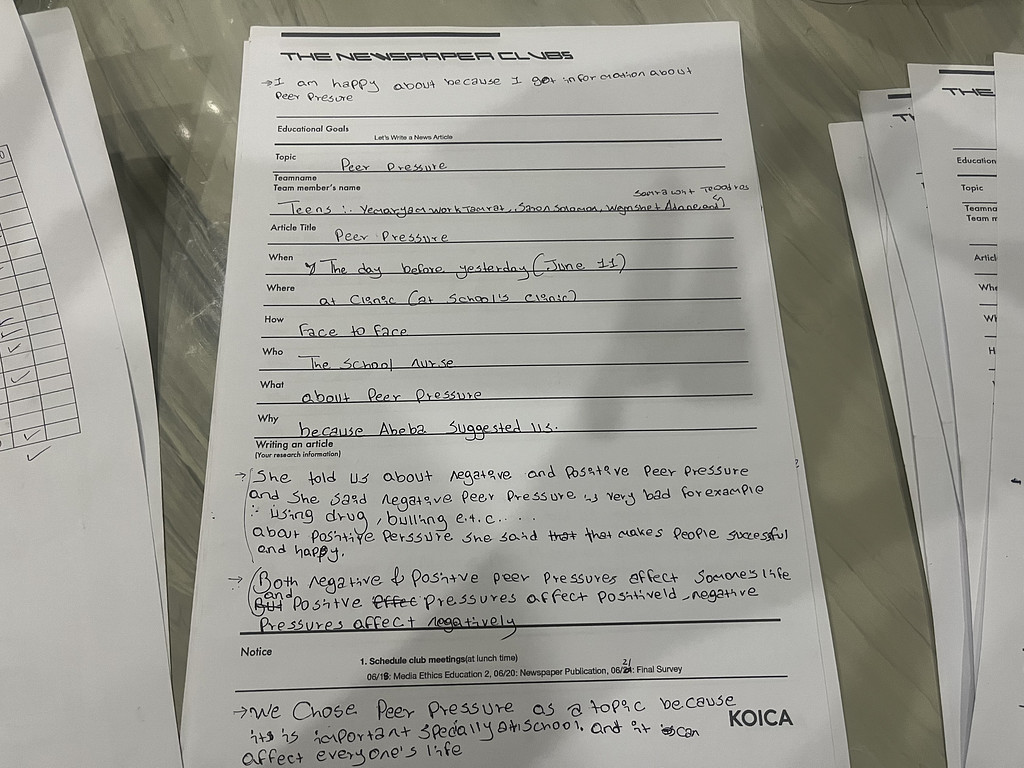 THE NEWSPAPER CLUBS
→ I am happy about because I got information about
Peer Presure
Educational Goals
Let's Write a News Article
Topic
Peer Pressure
Teamname
Team member's name
Teens :- Yemaryam work Tamrat, Saron Solomon, Wegnshet
Article Title
Peer Pressure
When
The day before yesterday (June 11)
Where
at Clinic (at School's Clinic)
How
Face to face
Who
The School nurse
What
about Peer Pressure
Why
because Abeba Suggested us.
Writing an article
(Your research information)
→ She told us about negative and Positive Peer Pressure
and She said negative Peer Pressure is very bad for example
:- Using drug, bulling e.t.c....
about Positive Perssure she said that that makes People successful
and happy.
→ Both negative & Positve peer Pressures affect Somones life
But and Positve effec Pressures affect Positiveld, negative
Pressures affect negatively
Notice
1. Schedule club meetings(at lunch time)
06/18: Media Ethics Education 2, 06/20: Newspaper Publication, 06/21: Final Survey
→ We Chose Peer Pressure as a topic because
its is important specially at school. and it can
affect everyone's life
KOICA
THE
Education
Topic
Teamna
Team m
Articl
Whe
Wh
H